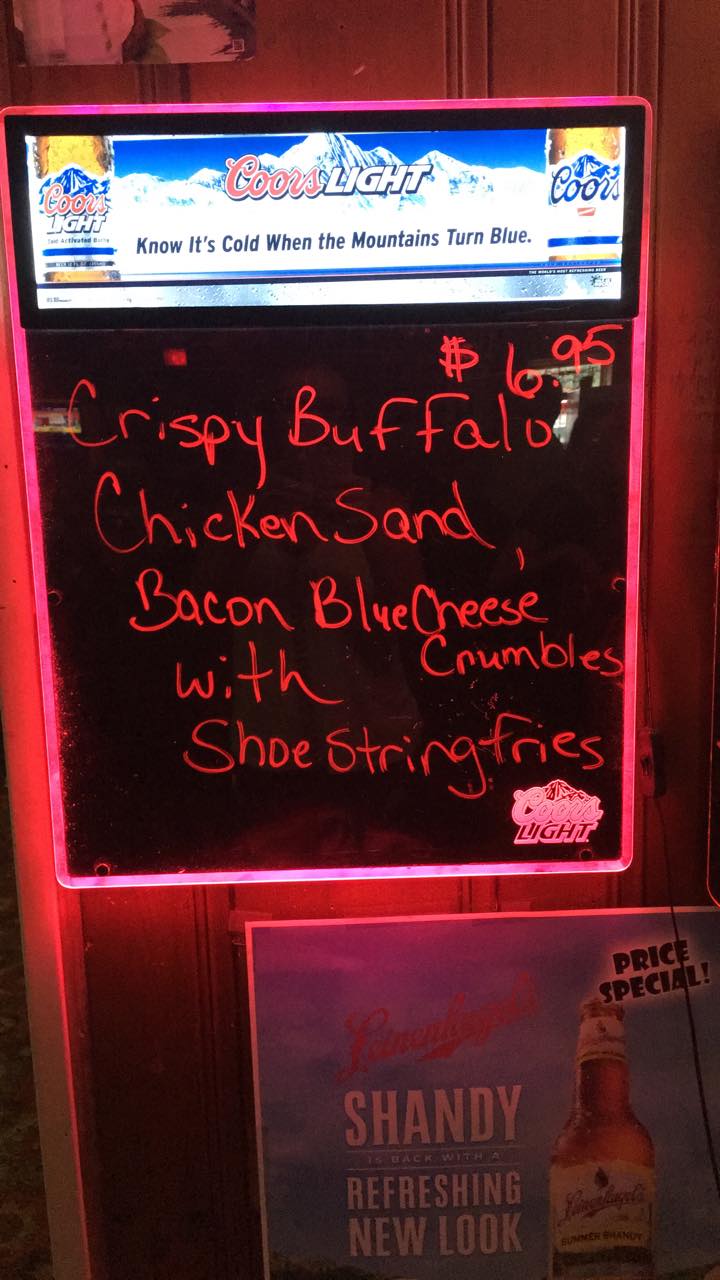 Coors LIGHT
Coors
LIGHT
Coors
Know It's Cold When the Mountains Turn Blue.
THE WORLD'S MOST REFRESHING BEER
$ 6.95
Crispy Buffalo
Chicken Sand,
Bacon Blue Cheese
Crumbles
with
Shoe String fries
Coors
LIGHT
PRICE
SPECIAL!
Leinenkugel's
SHANDY
IS BACK WITH A
REFRESHING
NEW LOOK
Leinenkugel's
SUMMER SHANDY